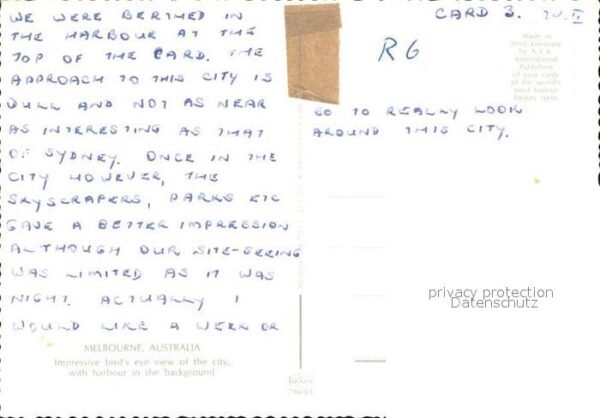 WE WERE BERTHED IN
THE HARBOUR AT THE
TOP OF THE CARD. THE
APPROACH TO THIS CITY IS
DULL AND NOT AS NEAR
AS INTERESTING AS THAT
OF SYDNEY. ONCE IN THE
CITY HOWEVER, THE
SKYSCRAPERS, PARKS ETC
GAVE A BETTER IMPRESSION
ALTHOUGH OUR SITE-SEEING
WAS LIMITED AS IT WAS
NIGHT. ACTUALLY I
WOULD LIKE A WEEK OR
MELBOURNE, AUSTRALIA
Impressive bird's eye view of the city,
with harbour in the background
CARD 3.
RG
Made in
West Germany
by
International
Publishers
of post cards
of the world's
most famous
beauty spots
SO TO REALLY LOOK
AROUND THIS CITY.
privacy protection
Datenschutz